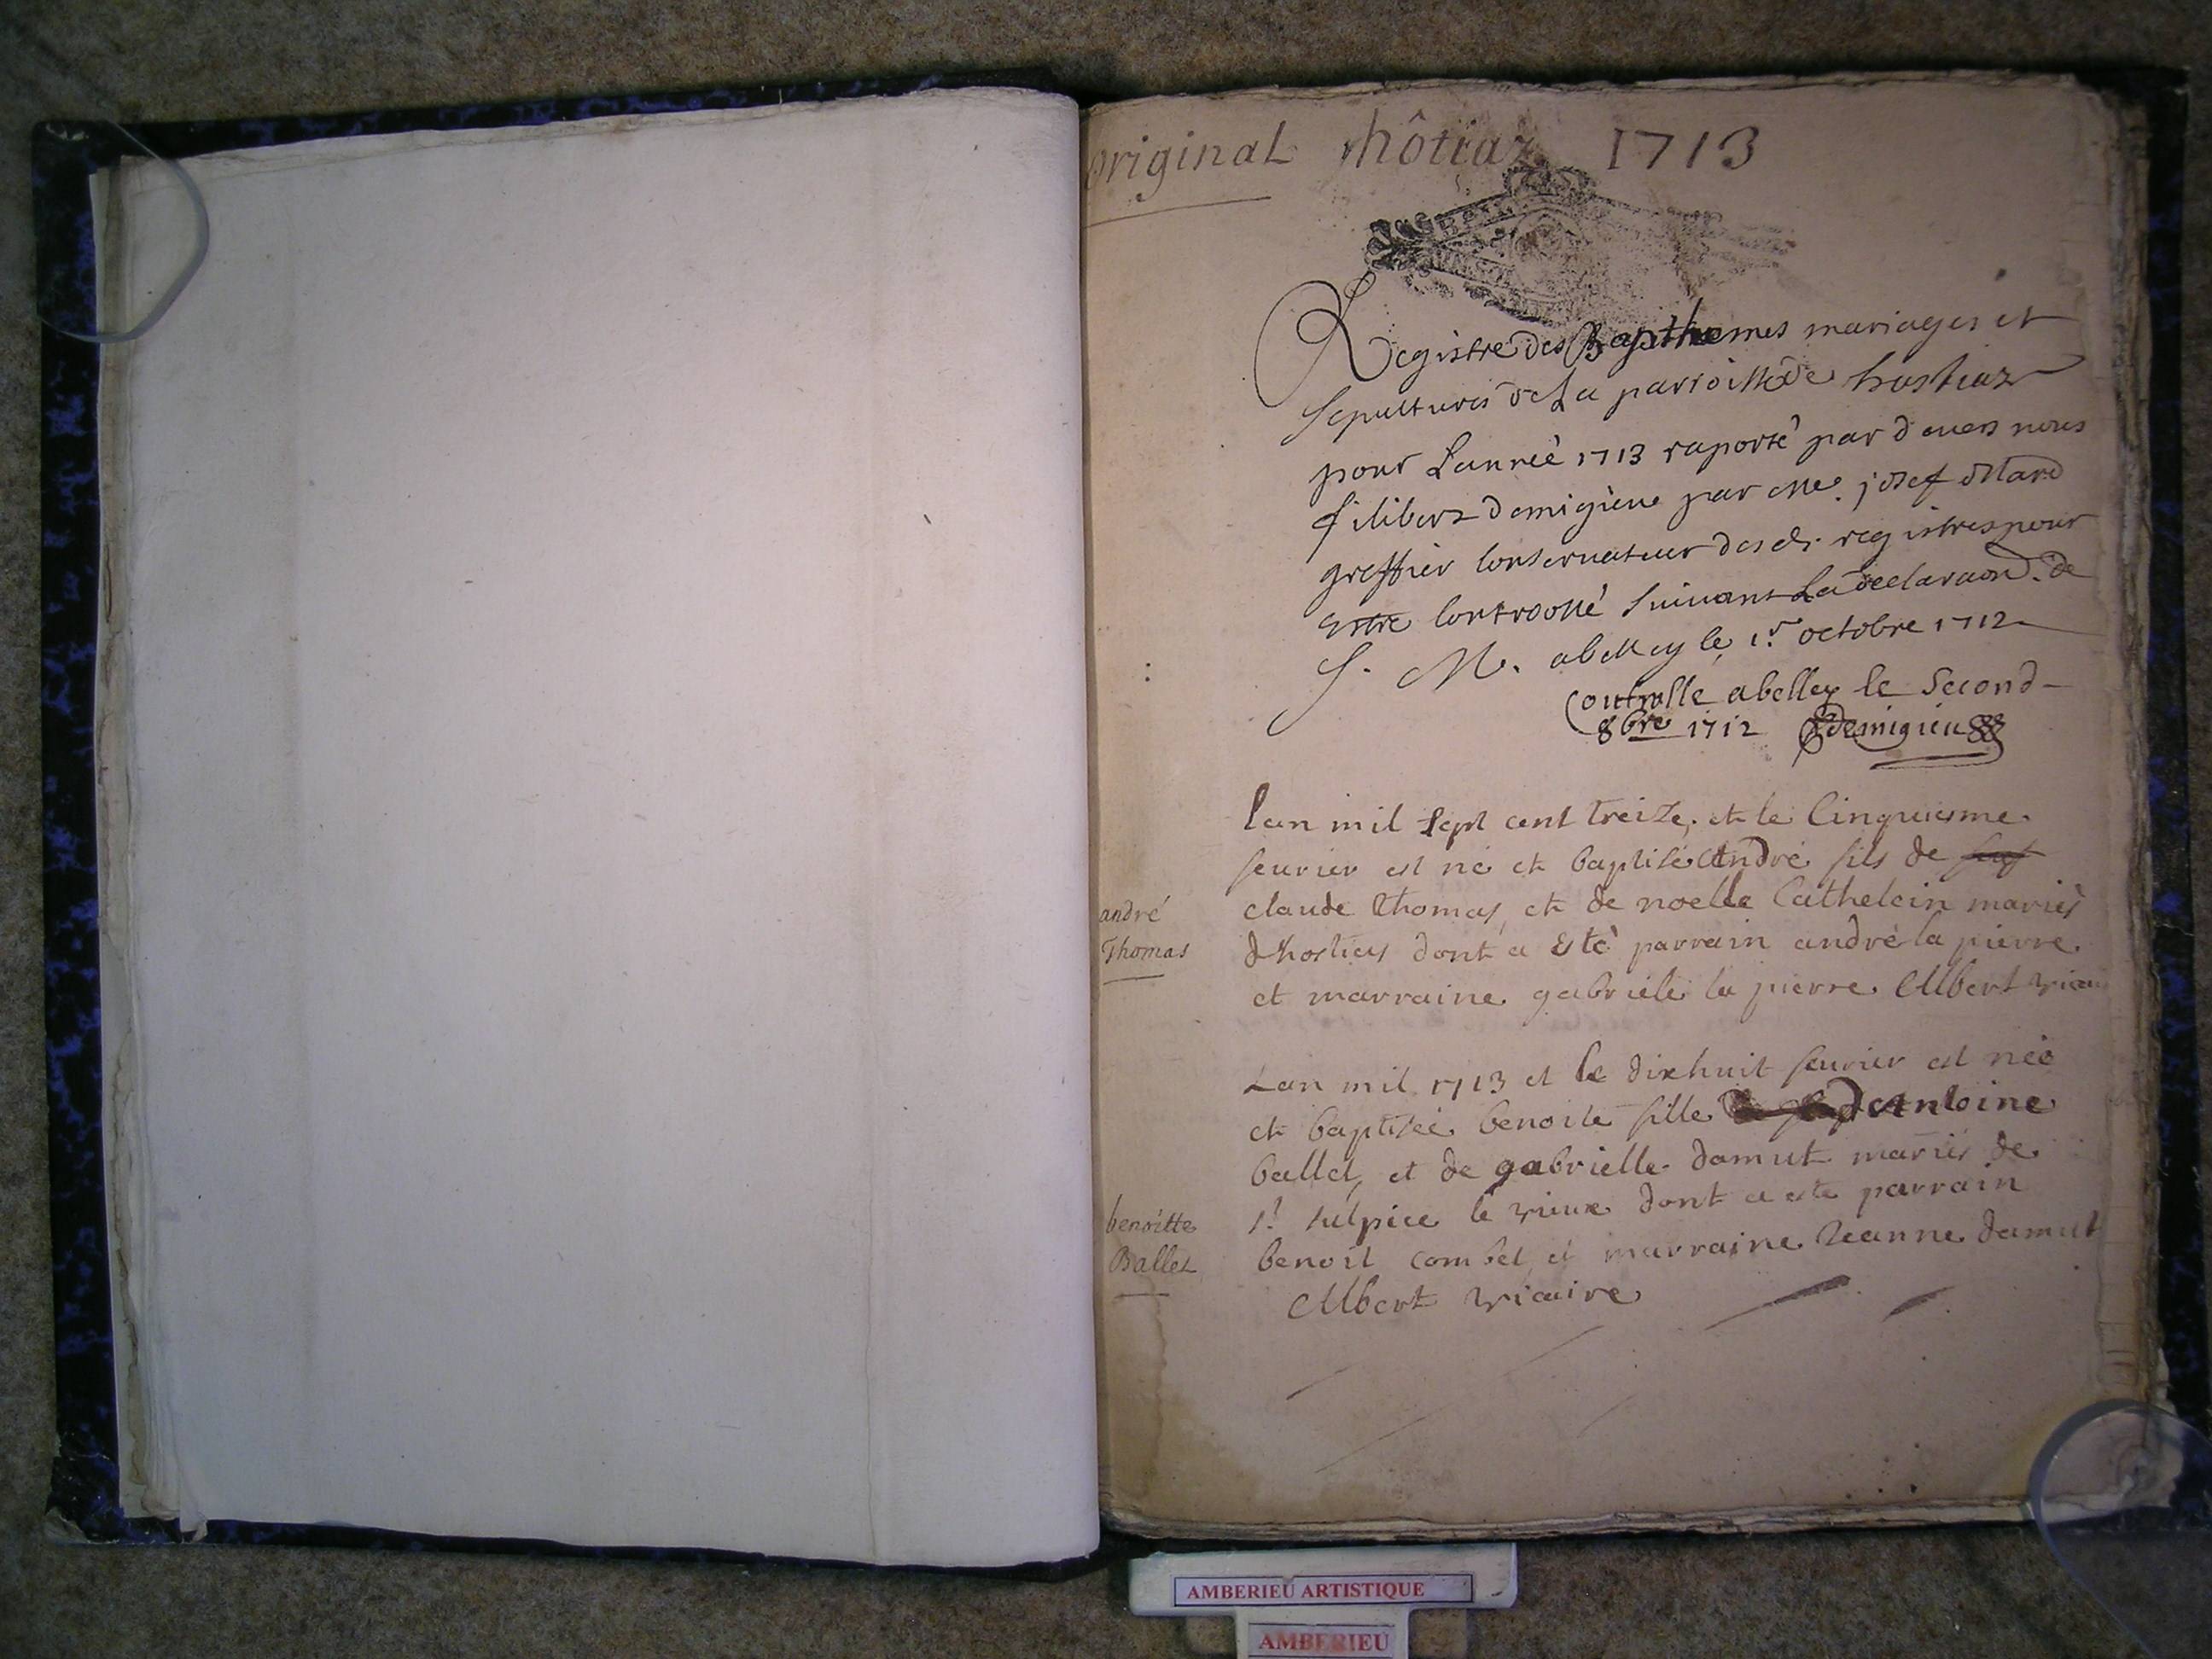 original hôtiaz 1713
Registre des Bapthemes mariages et
sepultures de La parroisse de hostiaz
pour L'anneé 1713 raporté par devers nous
filibert demigieu par Me. josef
greffier Conservateur desd. registres pour
estre Controollé suivant La declaraon. de
S. M. abelley le 1r. octobre 1712
Controlle abelley le Second
8bre 1712 Demigieu
Lan mil sept cent treize, et le Cinquiesme
feurier est né et baptisé André fils de
claude Thomas, et de noelle Cathelein mariés
dhostias dont a esté parrain andré la pierre
et marraine gabriele la pierre Albert vicai
andré
Thomas
Lan mil 1713 et le dixhuit feurier est née
et baptiseé benoite fille dAntoine
ballet, et de gabrielle damut mariés de
st sulpice le vieux dont a esté parrain
benoit combet, et marraine Jeanne damut
Albert vicaire
benoitte
Ballet
AMBERIEU ARTISTIQUE
AMBERIEU